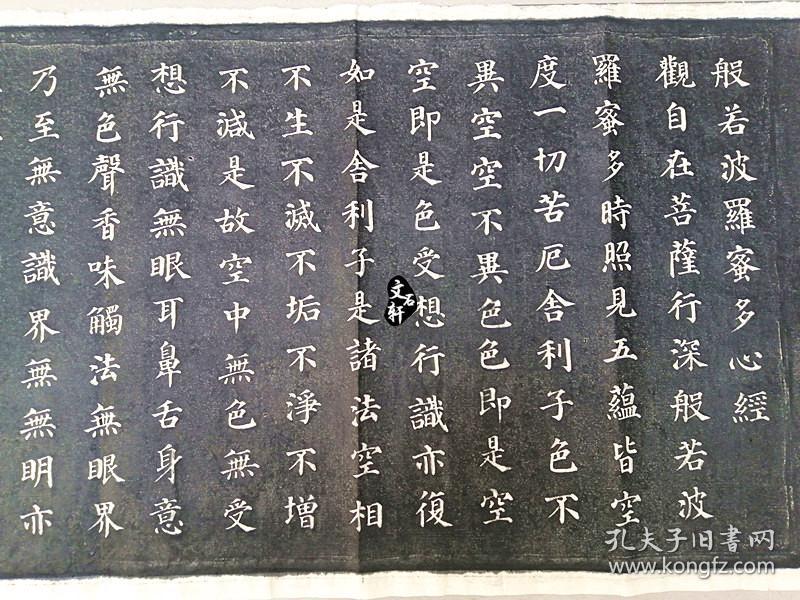 般若波羅蜜多心經
觀自在菩薩行深般若波
羅蜜多時照見五蘊皆空
度一切苦厄舍利子色不
異空空不異色色即是空
空即是色受想行識亦復
如是舍利子是諸法空相
不生不滅不垢不淨不增
不減是故空中無色無受
想行識無眼耳鼻舌身意
無色聲香味觸法無眼界
乃至無意識界無無明亦
文石軒
孔夫子旧書网
www.kongfz.com